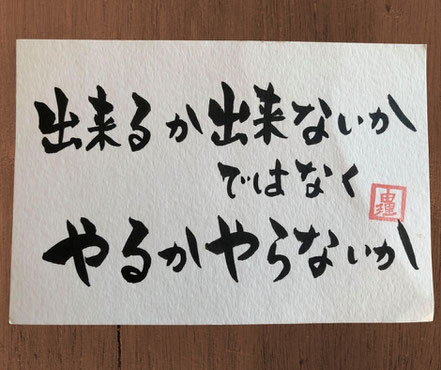 出来るか出来ないか
ではなく
やるかやらないか